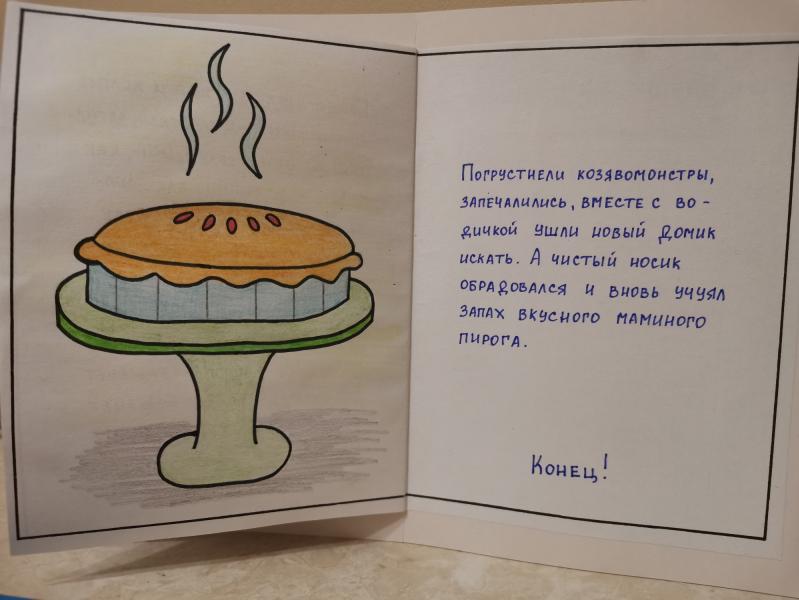 Погрустнели козявомонстры,
запечалились, вместе с во-
дичкой ушли новый домик
искать. А чистый носик
обрадовался и вновь учуял
запах вкусного маминого
пирога.
Конец!